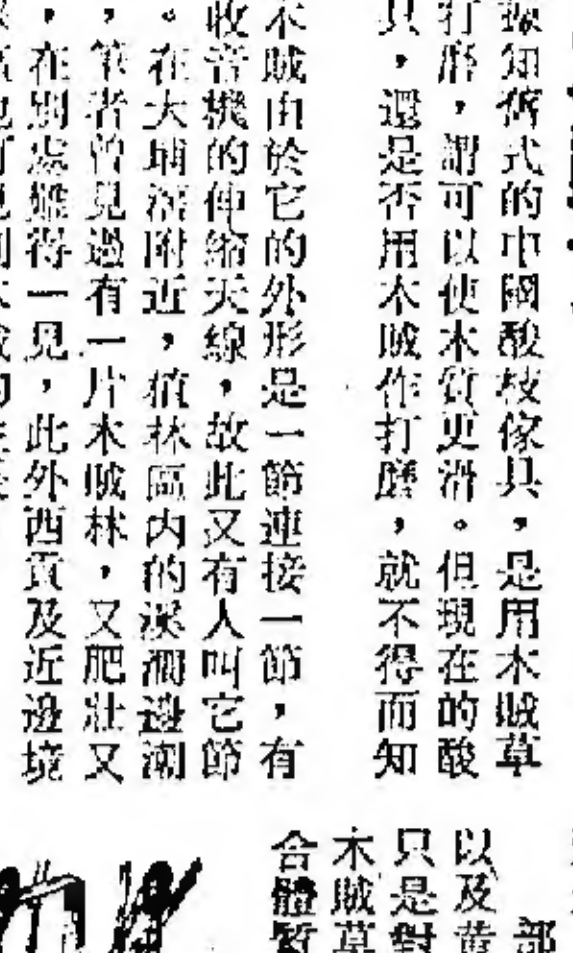 據知舊式的中國酸枝傢具,是用木賊草
打磨,謂可以使木質更滑。但現在的酸
具,還是否用木賊作打磨,就不得而知
木賊由於它的外形是一節連接一節,有
收音機的伸縮天線,故此又有人叫它節
。在大埔滘附近,植林區內的溪澗邊潮
,筆者曾見過有一片木賊林,又肥壯又
,在別處難得一見,此外西貢及近邊境
部
以及黃
只是對
木賊草
合體暫